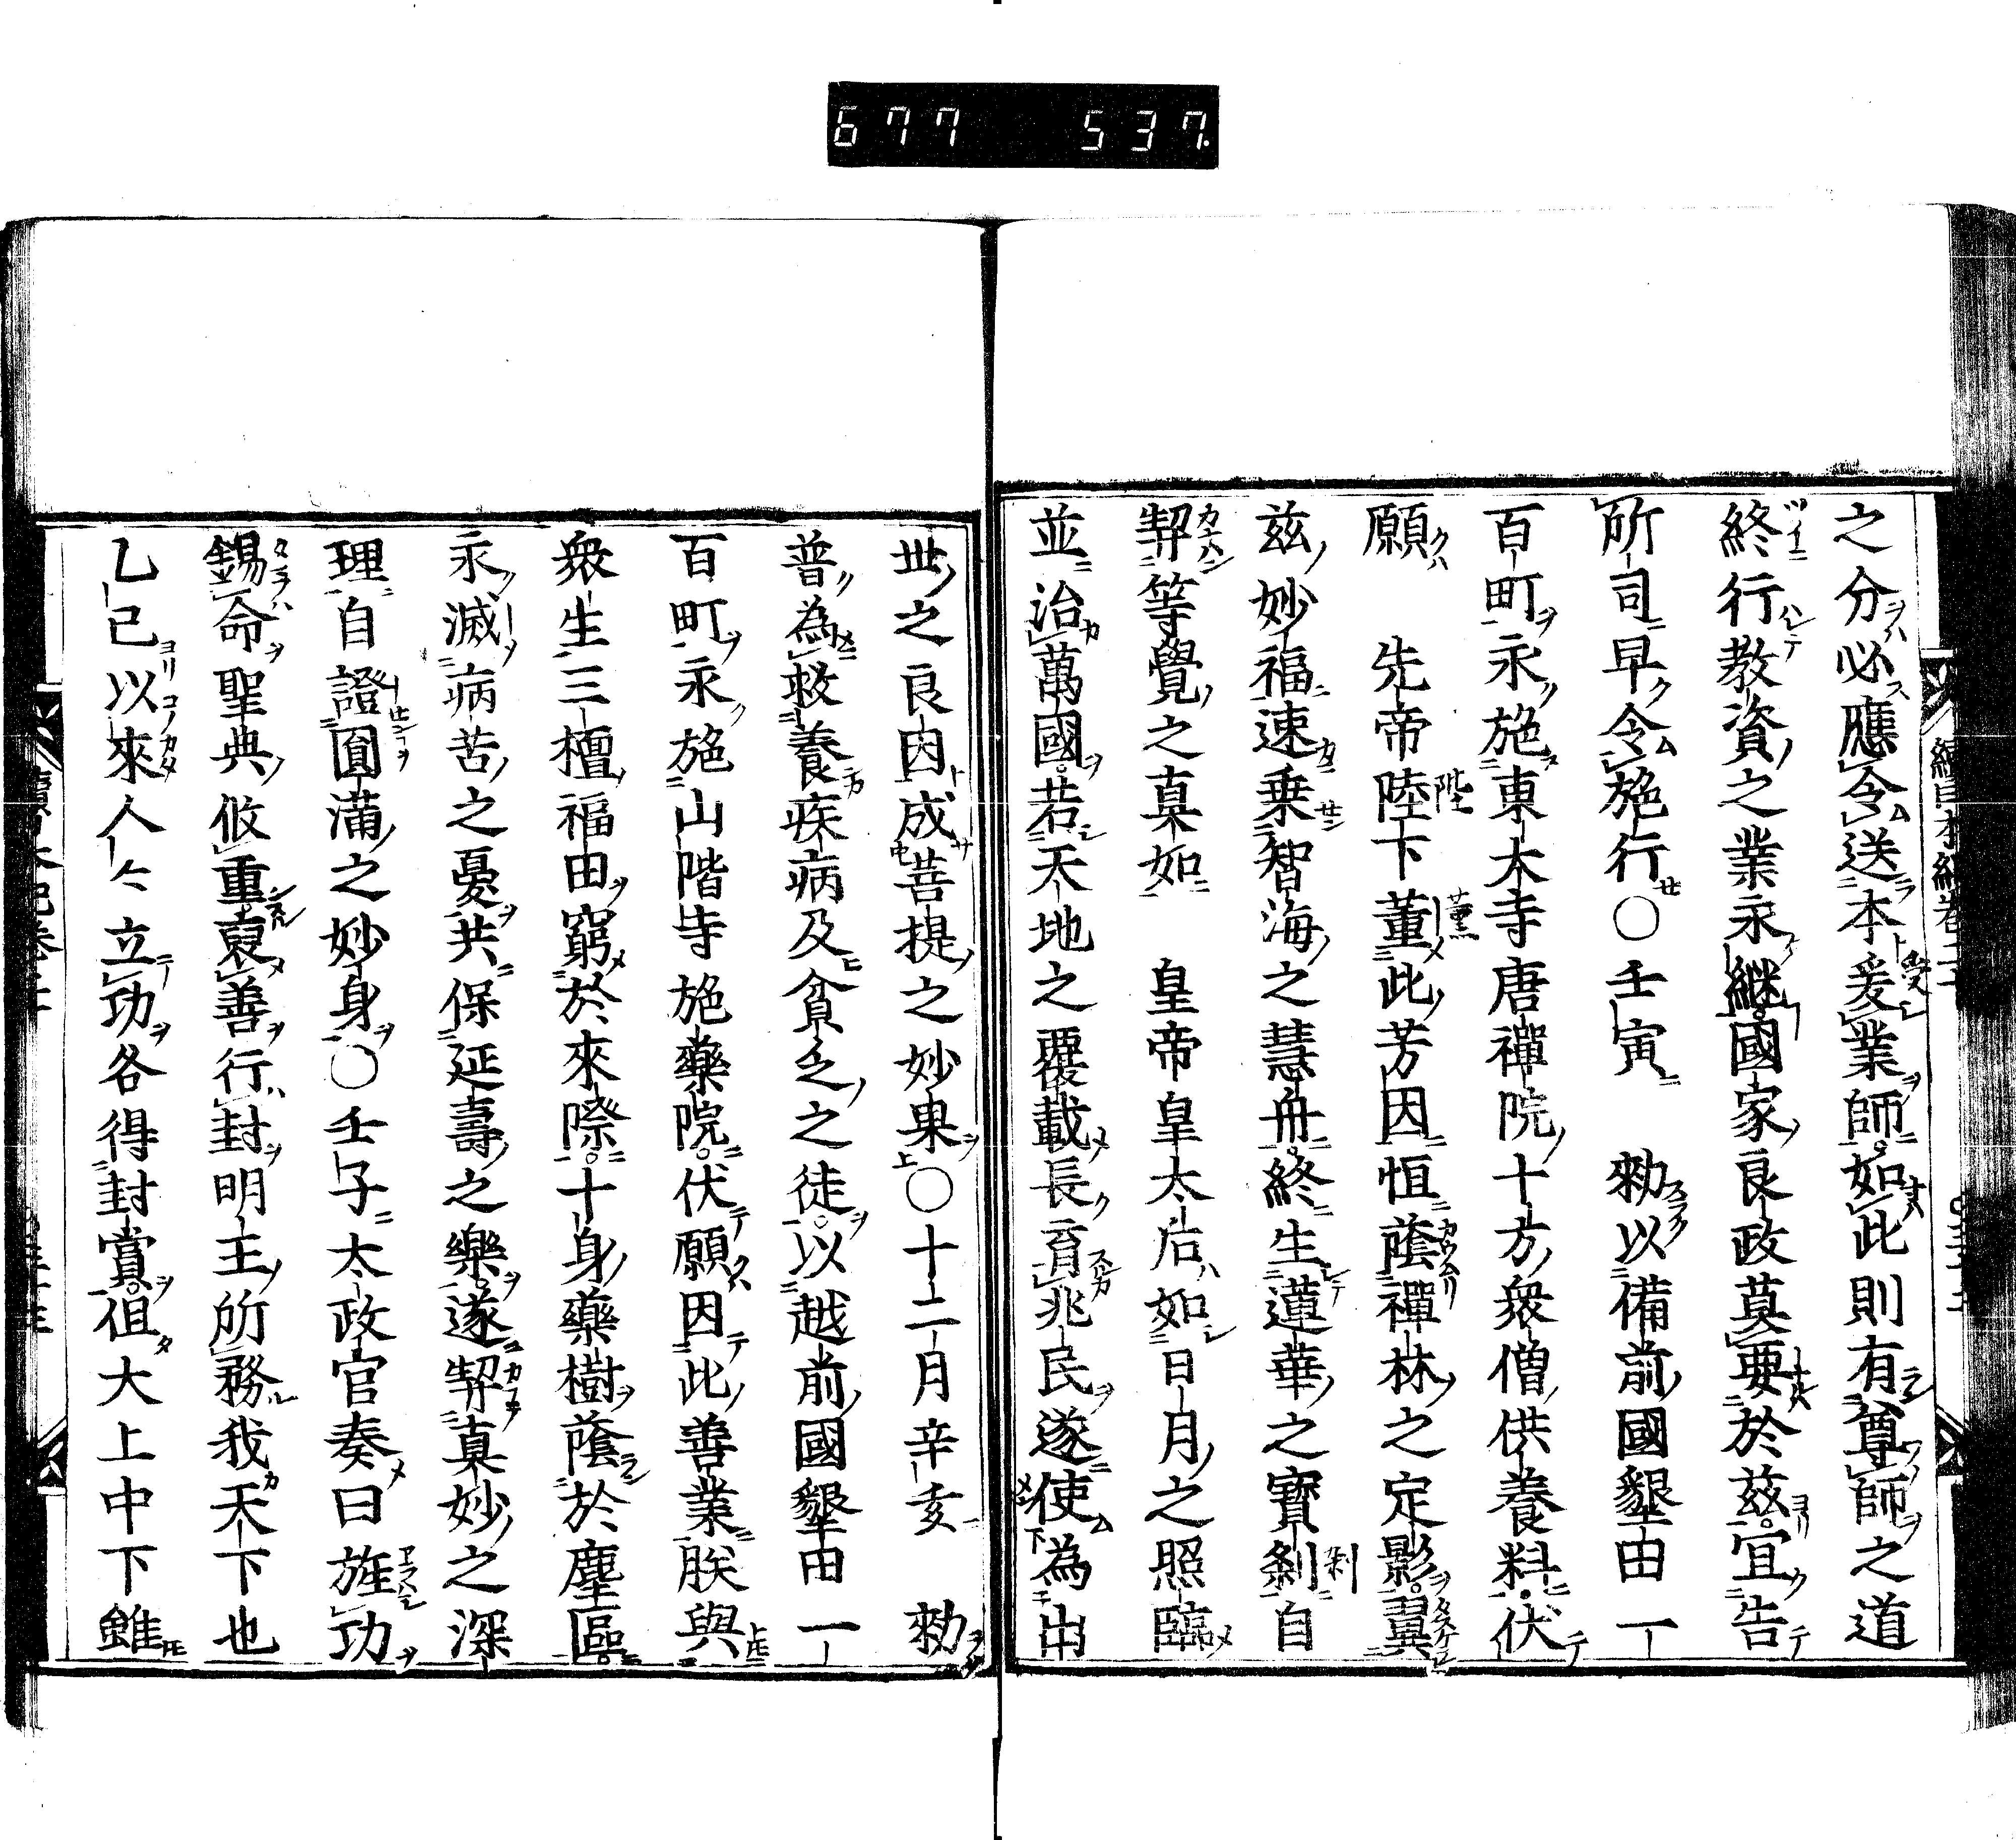 677 537
之分必應令送本爰業師如此則有尊師之道
終行教資之業永継國家良政莫要於茲宜告
所司早令施行〇壬寅 勑以備前國墾田一
百町永施東大寺唐禪院十方衆僧供養料伏
願 先帝陸下董此芳因恒蔭禪林之定影翼
茲妙福速乗智海之慧舟終生蓮華之寶刹自
契等覺之真如 皇帝皇太后如日月之照臨
並治萬國若天地之覆載長育兆民遂使為出
丗之良因成菩提之妙果〇十二月辛亥 勑
普為救養疾病及貧乏之徒以越前國墾田一
百町永施山階寺施藥院伏願因此善業朕與
衆生三檀福田窮於來際十身藥樹蔭於塵區
永滅病苦之憂共保延壽之樂遂契真妙之深
理自證圓滿之妙身〇壬子太政官奏曰旌功
錫命聖典攸重襃善行封明王所務我天下也
乙巳以來人々立功各得封賞但大上中下雖